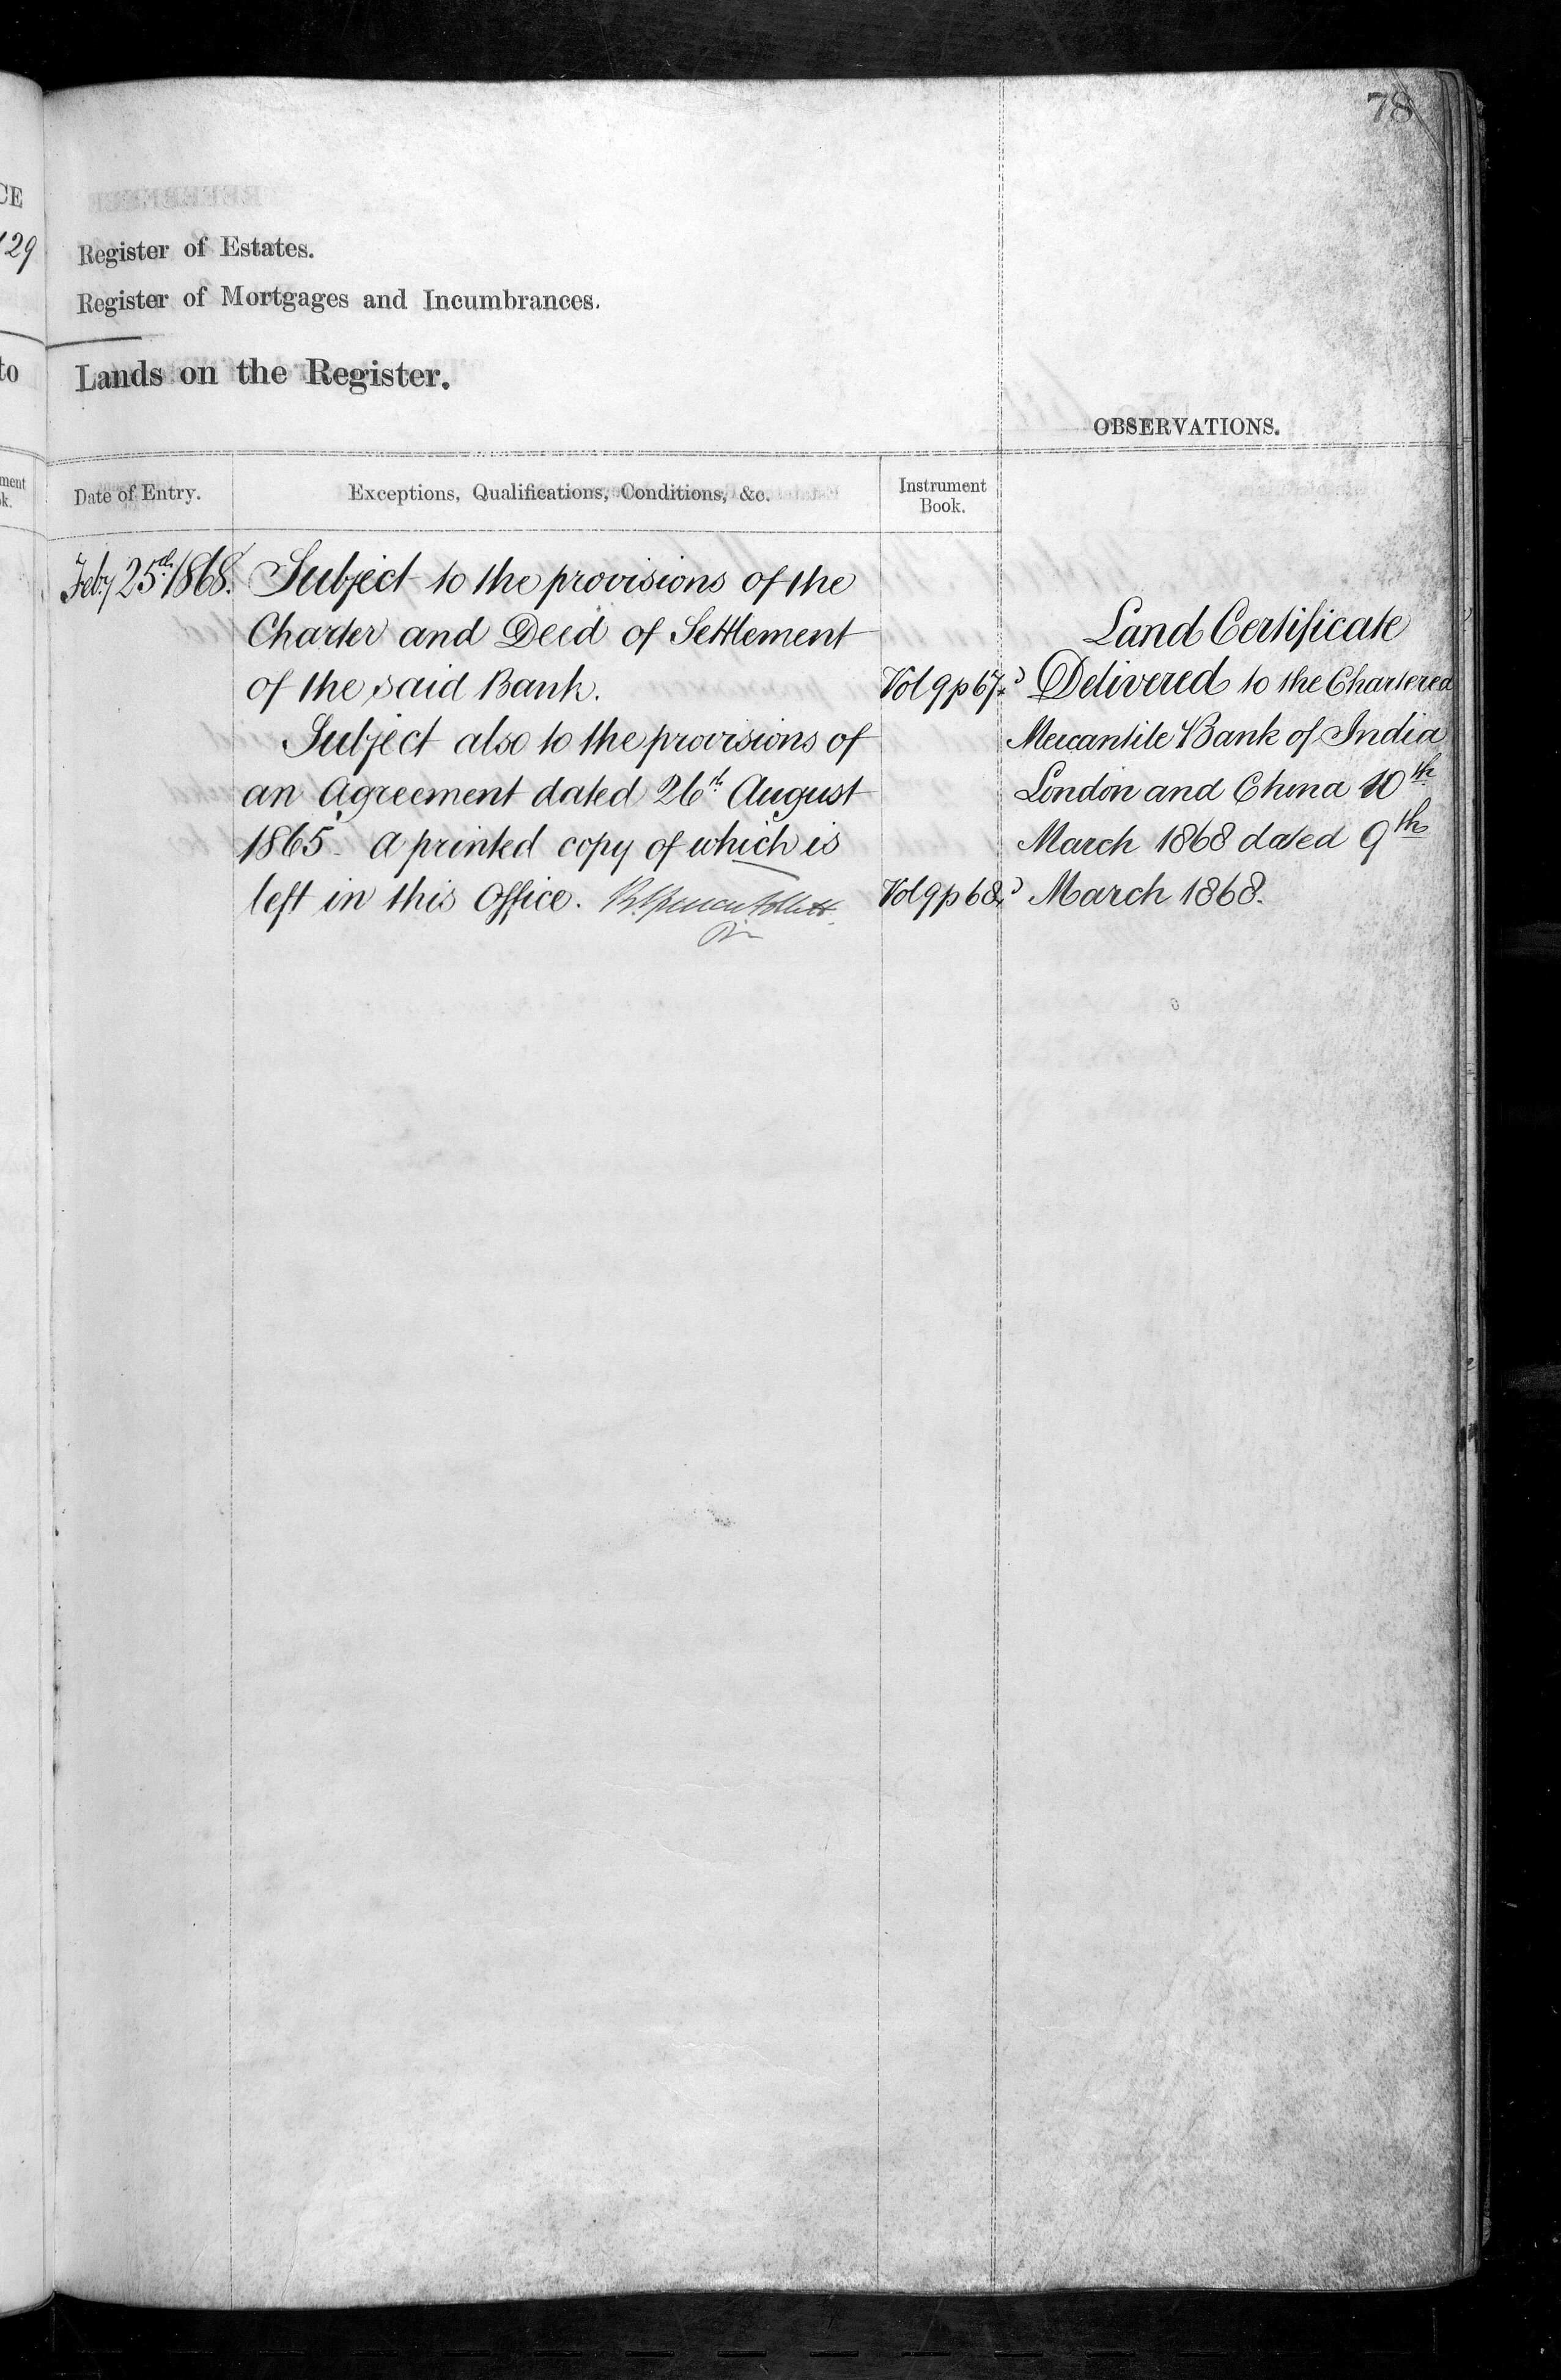 78
CE
129
Register of Estates.
Register of Mortgages and Incumbrances.
to
Lands on the Register.
OBSERVATIONS.
ment
k.
Date of Entry.
Exceptions, Qualifications, Conditions, &c.
Instrument
Book.
Feby 25th 1868.
Subject to the provisions of the
Charter and Deed of Settlement
of the said Bank.
Vol 9 p 67.
Subject also to the provisions of
an Agreement dated 26th August
1865. A printed copy of which is
left in this Office.
Vol 9 p 68.
Land Certificate
Delivered to the Chartered
Mercantile Bank of India
London and China 10th
March 1868 dated 9th
March 1868.